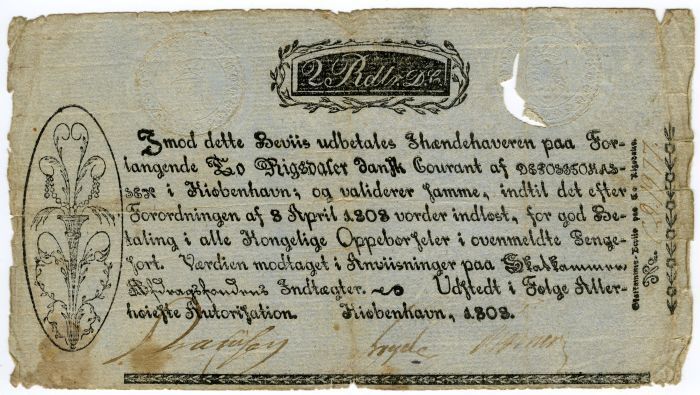 2 Rdlr. D. C.
Imod dette Beviis udbetales Ihændehaveren paa For-
langende To Rigsdaler dansk Courant af DEPOSITOKAS-
SEN i Kiöbenhavn; og validerer samme, indtil det efter
Forordningen af 8 April 1808 vorder indlöst, for god Be-
taling i alle Kongelige Oppebörseler i ovenmeldte Penge-
sort. Værdien modtaget i Anviisninger paa Skatkammer
Afdragsfondens Indtægter. Udstedt i Fölge Aller-
höieste Autorisation. Kiöbenhavn, 1808.
Skatkammer-Beviis paa To Rigsdaler.
No.